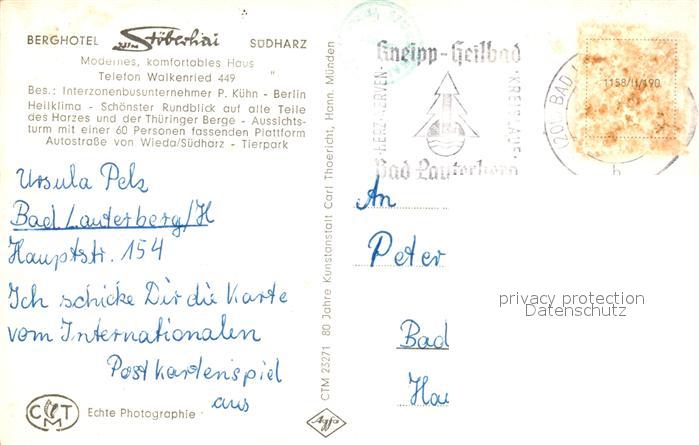 BERGHOTEL zum Stöberhai SÜDHARZ
Modernes, komfortables Haus
Telefon Walkenried 449
Bes.: Interzonenbusunternehmer P. Kühn - Berlin
Heilklima - Schönster Rundblick auf alle Teile
des Harzes und der Thüringer Berge - Aussichts-
turm mit einer 60 Personen fassenden Plattform
Autostraße von Wieda/Südharz - Tierpark
Ursula Pelz
Bad Lauterberg/H
Hauptstr. 154
Ich schicke Dir die Karte
vom Internationalen
Postkartenspiel
aus
CTM Echte Photographie
CTM 23271 80 Jahre Kunstanstalt Carl Thoericht, Hann. Münden
Agfa
Kneipp-Heilbad
HERZ · NERVEN · KREISLAUF
Bad Lauterberg
(20b) BAD
b
1158/II/190
An
Peter
Bad
Hau
privacy protection
Datenschutz